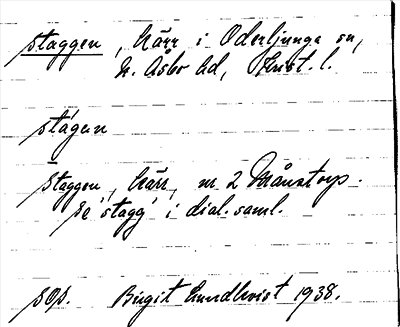 staggen, kärr i Oderljunga sn,
N. Åsbo hd, Krist. l.
stágen
staggen, kärr, nr 2 Månstorp.
se 'stagg' i dial. saml.
sOp. Birgit Lundkvist 1938.